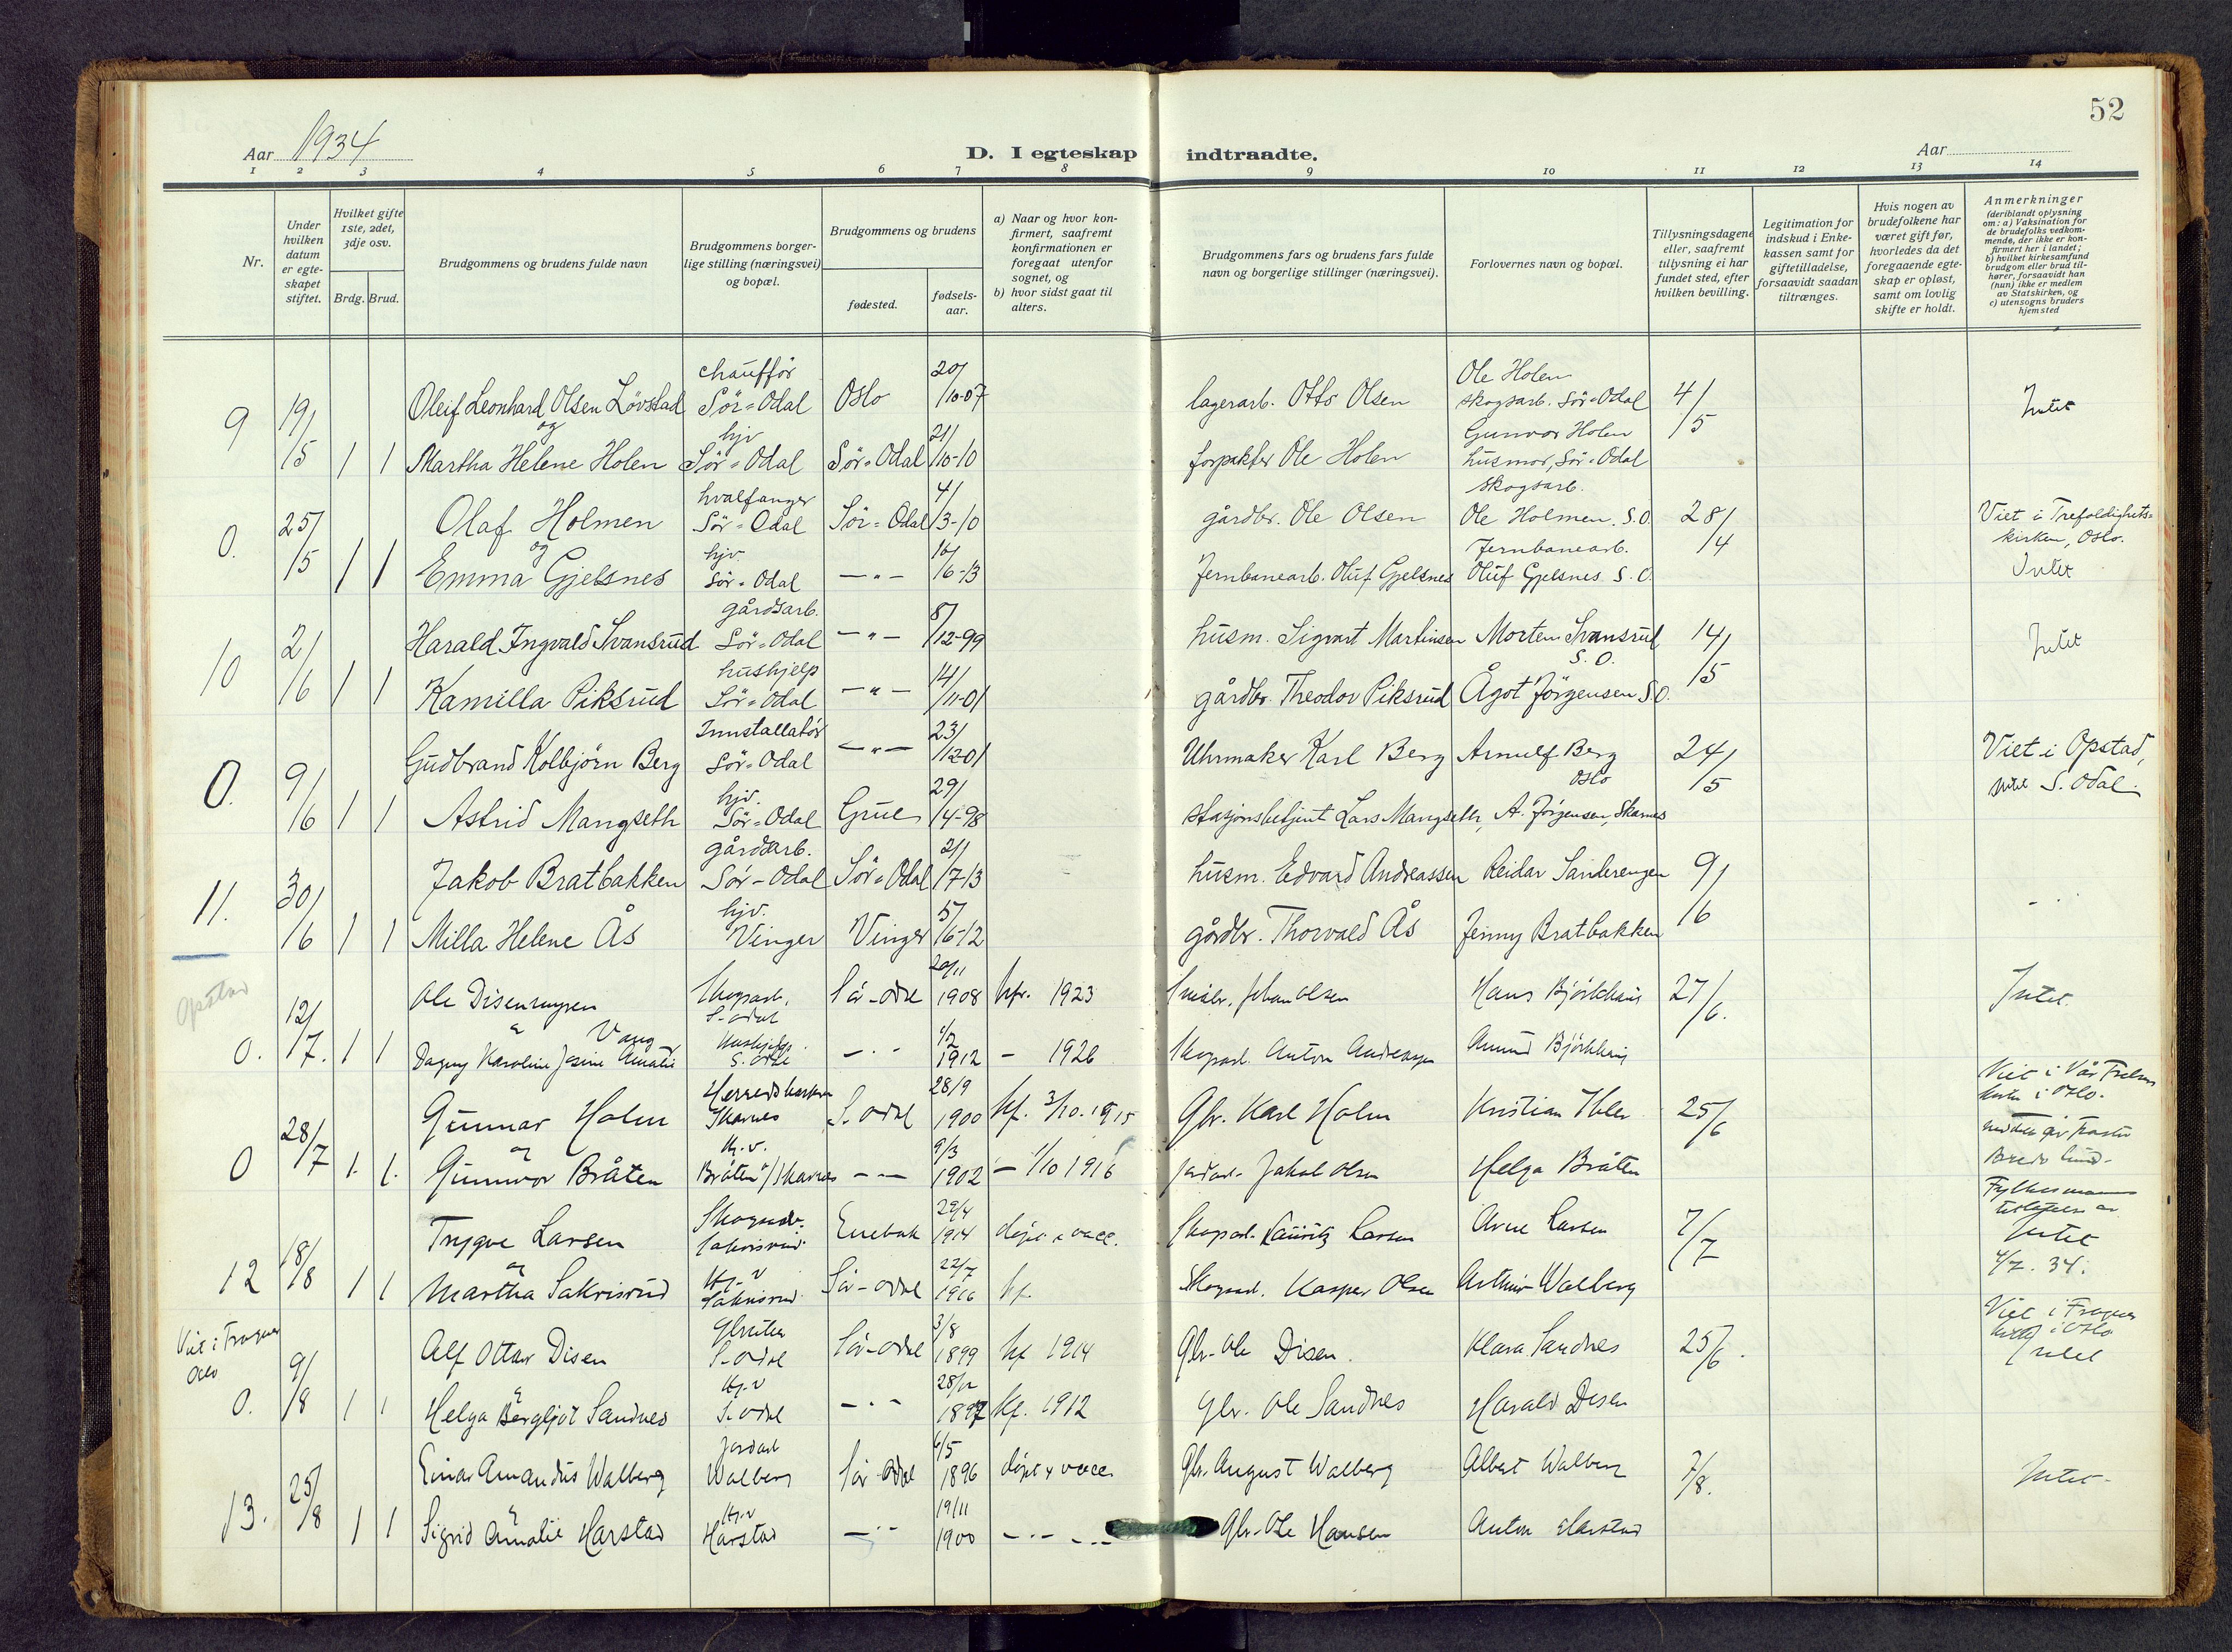 52
Aar 1934
D. I egteskap indtraadte.
Aar
1 2 3 4 5 6 7 8 9 10 11 12 13 14
Nr.
Under hvilken datum er egteskapet stiftet.
Hvilket gifte 1ste, 2det, 3dje osv.
Brdg. Brud.
Brudgommens og brudens fulde navn
Brudgommens borgerlige stilling (næringsvei) og bopæl.
Brudgommens og brudens
fødested.
fødselsaar.
a) Naar og hvor konfirmert, saafremt konfirmationen er foregaat utenfor sognet, og
b) hvor sidst gaat til alters.
Brudgommens fars og brudens fars fulde navn og borgerlige stillinger (næringsvei).
Forlovernes navn og bopæl.
Tillysningsdagene eller, saafremt tillysning ei har fundet sted, efter hvilken bevilling.
Legitimation for indskud i Enkekassen samt for giftetilladelse, forsaavidt saadan tiltrænges.
Hvis nogen av brudefolkene har været gift før, hvorledes da det foregaaende egteskap er opløst, samt om lovlig skifte er holdt.
Anmerkninger
(deriblandt oplysning om: a) Vaksination for de brudefolks vedkommende, der ikke er konfirmert her i landet; b) hvilket kirkesamfund brudgom eller brud tilhører, forsaavidt han (hun) ikke er medlem av Statskirken, og c) utensogns bruders hjemsted
9 19/5 Oleif Leonhard Olsen Lövstad chaufför Sör=Odal Oslo 20/10-07 lagerarb. Otto Olsen Ole Holen skogsarb. Sör=Odal 4/5 Intet
og
1 1 Martha Helene Holen hjv Sör=Odal Sör=Odal 21/10-10 forpakter Ole Holen Gunvor Holen husmor, Sör=Odal
0. 25/5 Olaf Holmen hvalfanger Sör=Odal Sör=Odal 4/3-10 gårdbr. Ole Olsen skogsarb. Ole Holmen. S.O. 28/4 Viet i Trefoldighetskirken, Oslo.
og
1 1 Emma Gjelsnes hjv. Sör=Odal —"— 16/6-13 Jernbanearb. Oluf Gjelsnes Jernbanearb. Oluf Gjelsnes S.O. Intet
10 2/6 Harald Ingvald Svansrud gårdsarb. Sör=Odal —"— 8/12-99 husm. Sigvart Martinsen Morten Svansrud S.O. 14/5 Intet
1 1 Kamilla Piksrud hushjelp Sör=Odal —"— 14/11-01 gårdbr. Theodor Piksrud Ågot Jörgensen S.O.
0. 9/6 Gudbrand Kolbjörn Berg Innstallatör Sör=Odal —"— 23/12-01 Uhrmaker Karl Berg Arnulf Berg Oslo 24/5 Viet i Opstad, S. Odal.
1 1 Astrid Mangseth hjv. Sör=Odal Grue 29/4-98 stasjonsbetjent Lars Mangseth, A. Jörgensen, Skarnes
11. 30/6 Jakob Bratbakken gårdsarb. Sör-Odal Sör=Odal 21/7-13 husm. Edvard Andreassen Reidar Sanderengen 9/6
1 1 Milla Helene Ås hjv. Vinger Vinger 5/6-12 gårdbr. Thorvald Ås Jenny Bratbakken
Opstad
0. 12/7. Ole Disenengen Skogsarb. S-odal Sör-odal 20/11 1908 kfr. 1923 Johan Olsen Hans Björkhaug 27/6. Intet.
1 1 Dagny Karoline Josine Amalie Vang Hushjelp. S. odal —"— 1912 — 1926 Skogsarb. Anton Amund Björkhaug
0 28/7 Gunnar Holm Skarnes S-odal 28/9 1900 kf. 3/10. 1915 Gbr. Karl Holm Kristian Ihler 25/6 Viet i Vår Frelsers kirke i Oslo.
og
1. 1. Gunnvor Bråten H.v. Bråten/Skarnes —"— 9/3 1902 — 1/10 1916 Jakob Olsen Helga Bråten
12 18/8 Trygve Larsen Skogsarb. Sakrisrud Enebak 29/4 1914 döpt & vacc. Skogsarb. Lauritz Larsen Arne Larsen 7/7 Fylkesmannens Intet 4/7. 34.
og
1 1 Martha Sakrisrud Hj-v Sakrisrud Sör-odal 22/7 1916 kf. Skogsarb. Kasper Olsen Arthur Walberg
Viet i Frogner Oslo
0. 9/8 Alf Ottar Disen S-odal Sör-odal 3/8 1899 kf 1914 Gbr. Ole Disen. Klara Sandnes 25/6. Viet i Frogner i Oslo Intet
1 1 Helga Bergljot Sandnes Hj.v S-odal —"— 28/12 1897 Kf. 1912 Gbr. Ole Sandnes Harald Disen
13. 25/8 Einar Amandus Walberg Jordarb Walberg Sör-odal 6/5 1896 döpt & vacc. Gbr. August Walberg Albert Walberg 7/8. Intet-
1 1 Sigrid Amalie Harstad Hj.v Harstad —"— 19/11 1900 —"— Gbr. Ole Hansen Anton Harstad